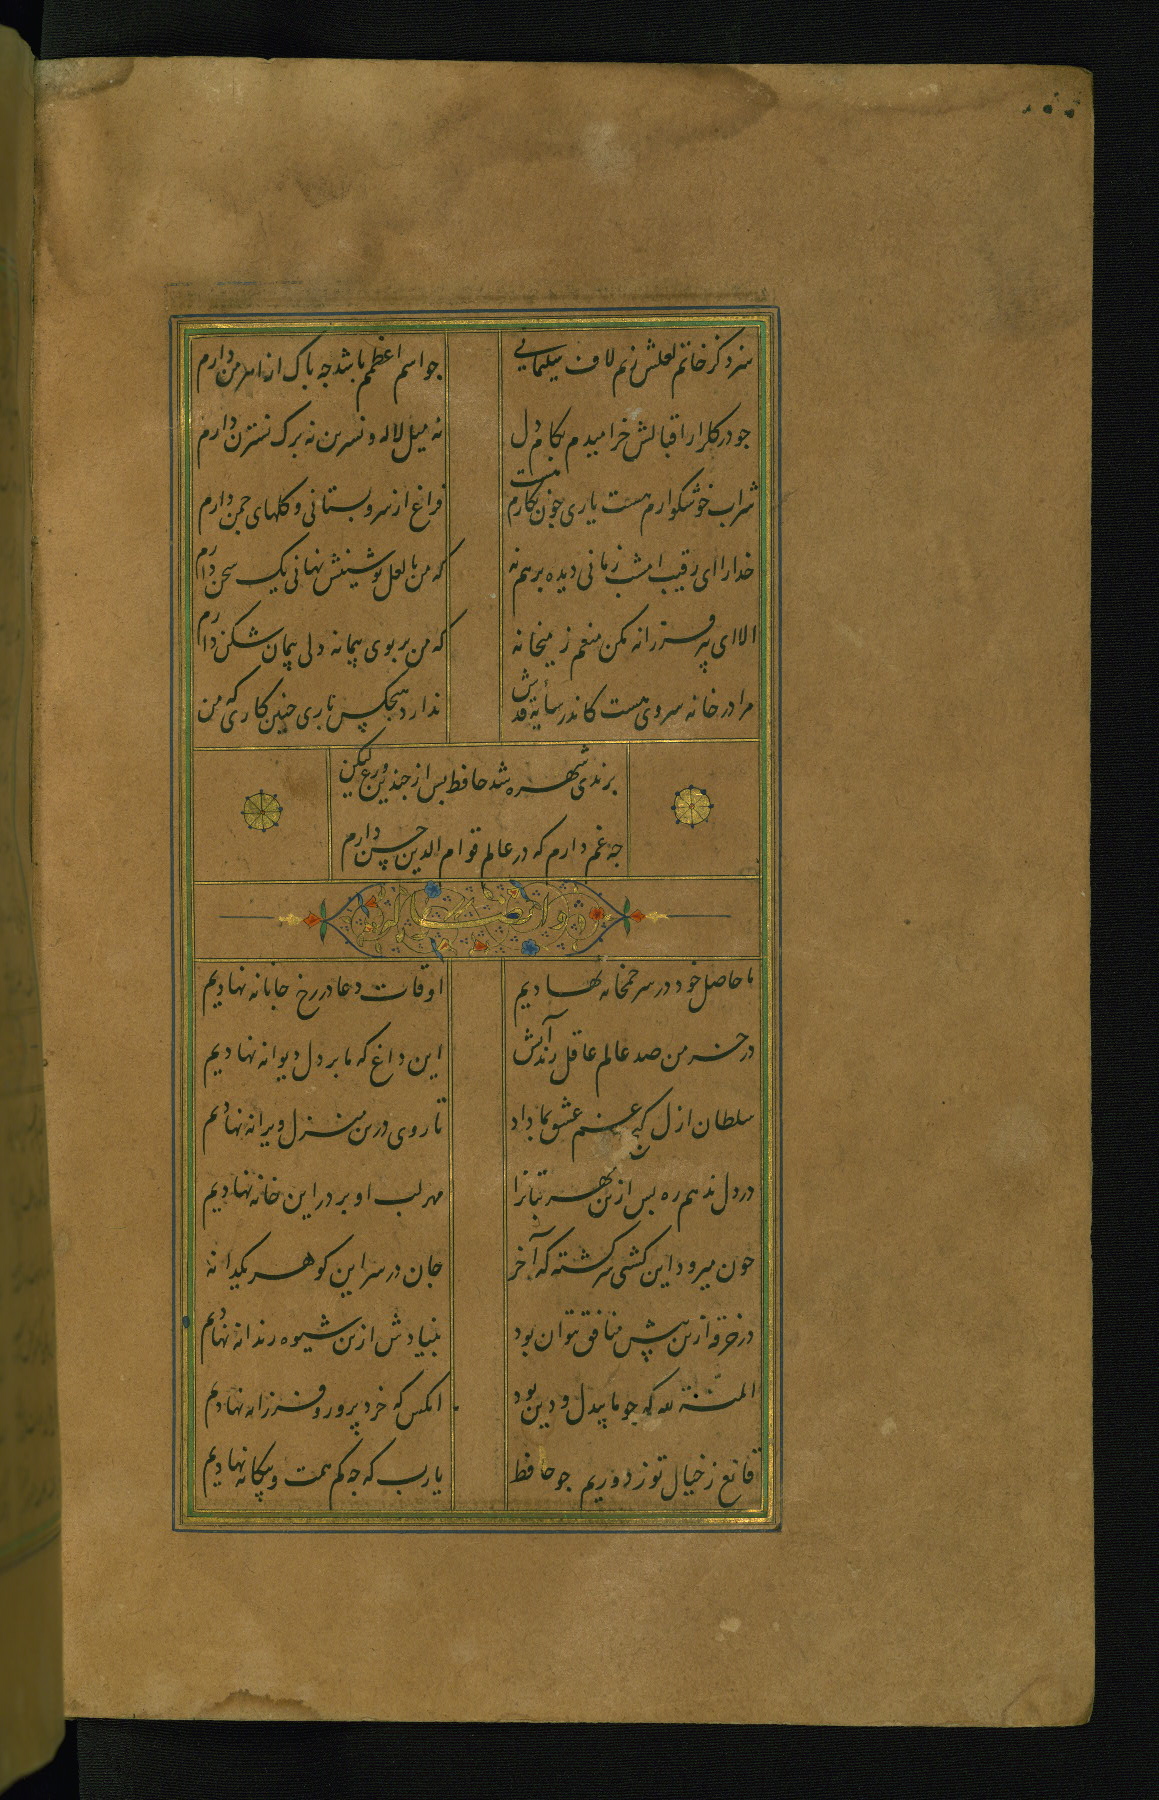 سزد کز خاتم لعلش زنم لاف سلیمانی جو اسم اعظمم باشد جه باک از اهرمن دارم
جو در کلزار اقبالش خرامیدم بکام دل نه میل لاله و نسرین نه برک نسترن دارم
شراب خوشکوارم هست یاری جون نکارم هست فراغ از سرو بستانی و کلهای جمن دارم
خدارا ای رقیب امشب زمانی دیده بر هم نه که من با لعل نوشینش نهانی یک سخن دارم
الا ای پیر فرزانه مکن منعم ز میخانه که من بر بوی پیمانه دلی پیمان شکن دارم
مرا در خانه سروی هست کاندر سایهٔ قدش ندارد هیجکس یاری جنین کاری که من
برندی شهره شد حافظ بس از جندین ورع لیکن
جه غم دارم که در عالم قوام الدین حسن دارم
ما حاصل خود در سر خمخانه نهادیم اوقات دعا در رخ جانانه نهادیم
در خرمن صد عالم عاقل زند آتش این داغ که ما بر دل دیوانه نهادیم
سلطان ازل کنج غم عشق بما داد تا روی درین منزل ویرانه نهادیم
در دل ندهم ره بس ازین مهر بتانرا مهر لب او بر در این خانه نهادیم
جون میرود این کشتی سرکشته که آخر جان در سر این کوهر یکدانه
در خرقه ازین بیش منافق نتوان بود بنیادش ازین شیوه رندانه نهادیم
المنة لله که جو ما بیدل و دین بود انکس که خرد پرور و فرزانه نهادیم
قانع ز خیال تو زدوریم جو حافظ یا رب که جه کم همت و بیکانه نهادیم